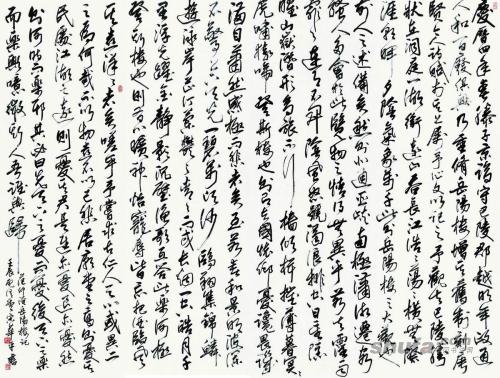 慶曆四年春滕子京謫守巴陵郡越明年政通
人和百廢俱興乃重修岳陽樓增其舊制刻唐
賢今人詩賦于其上屬予作文以記之予觀夫巴陵勝
狀在洞庭一湖銜遠山吞長江浩浩湯湯橫無際
涯朝暉夕陰氣象萬千此則岳陽樓之大觀也
前人之述備矣然則北通巫峽南極瀟湘遷客
騷人多會於此覽物之情得無異乎若夫霪雨
霏霏連月不開陰風怒號濁浪排空日星隱
耀山嶽潛形商旅不行檣傾楫摧薄暮冥冥
虎嘯猿啼登斯樓也則有去國懷鄉憂讒畏譏
滿目蕭然感極而悲者矣至若春和景明波瀾
不驚上下天光一碧萬頃沙鷗翔集錦鱗
遊泳岸芷汀蘭郁郁青青而或長煙一空皓月千
里浮光躍金靜影沉璧漁歌互答此樂何極
登斯樓也則有心曠神怡寵辱皆忘把酒臨風
其喜洋洋者矣嗟乎予嘗求古仁人之心或異二
者之為何哉不以物喜不以己悲居廟堂之高則憂其
民處江湖之遠則憂其君是進亦憂退亦憂然
則何時而樂耶其必曰先天下之憂而憂後天下之樂
而樂歟噫微斯人吾誰與歸
范仲淹岳陽樓記
壬辰